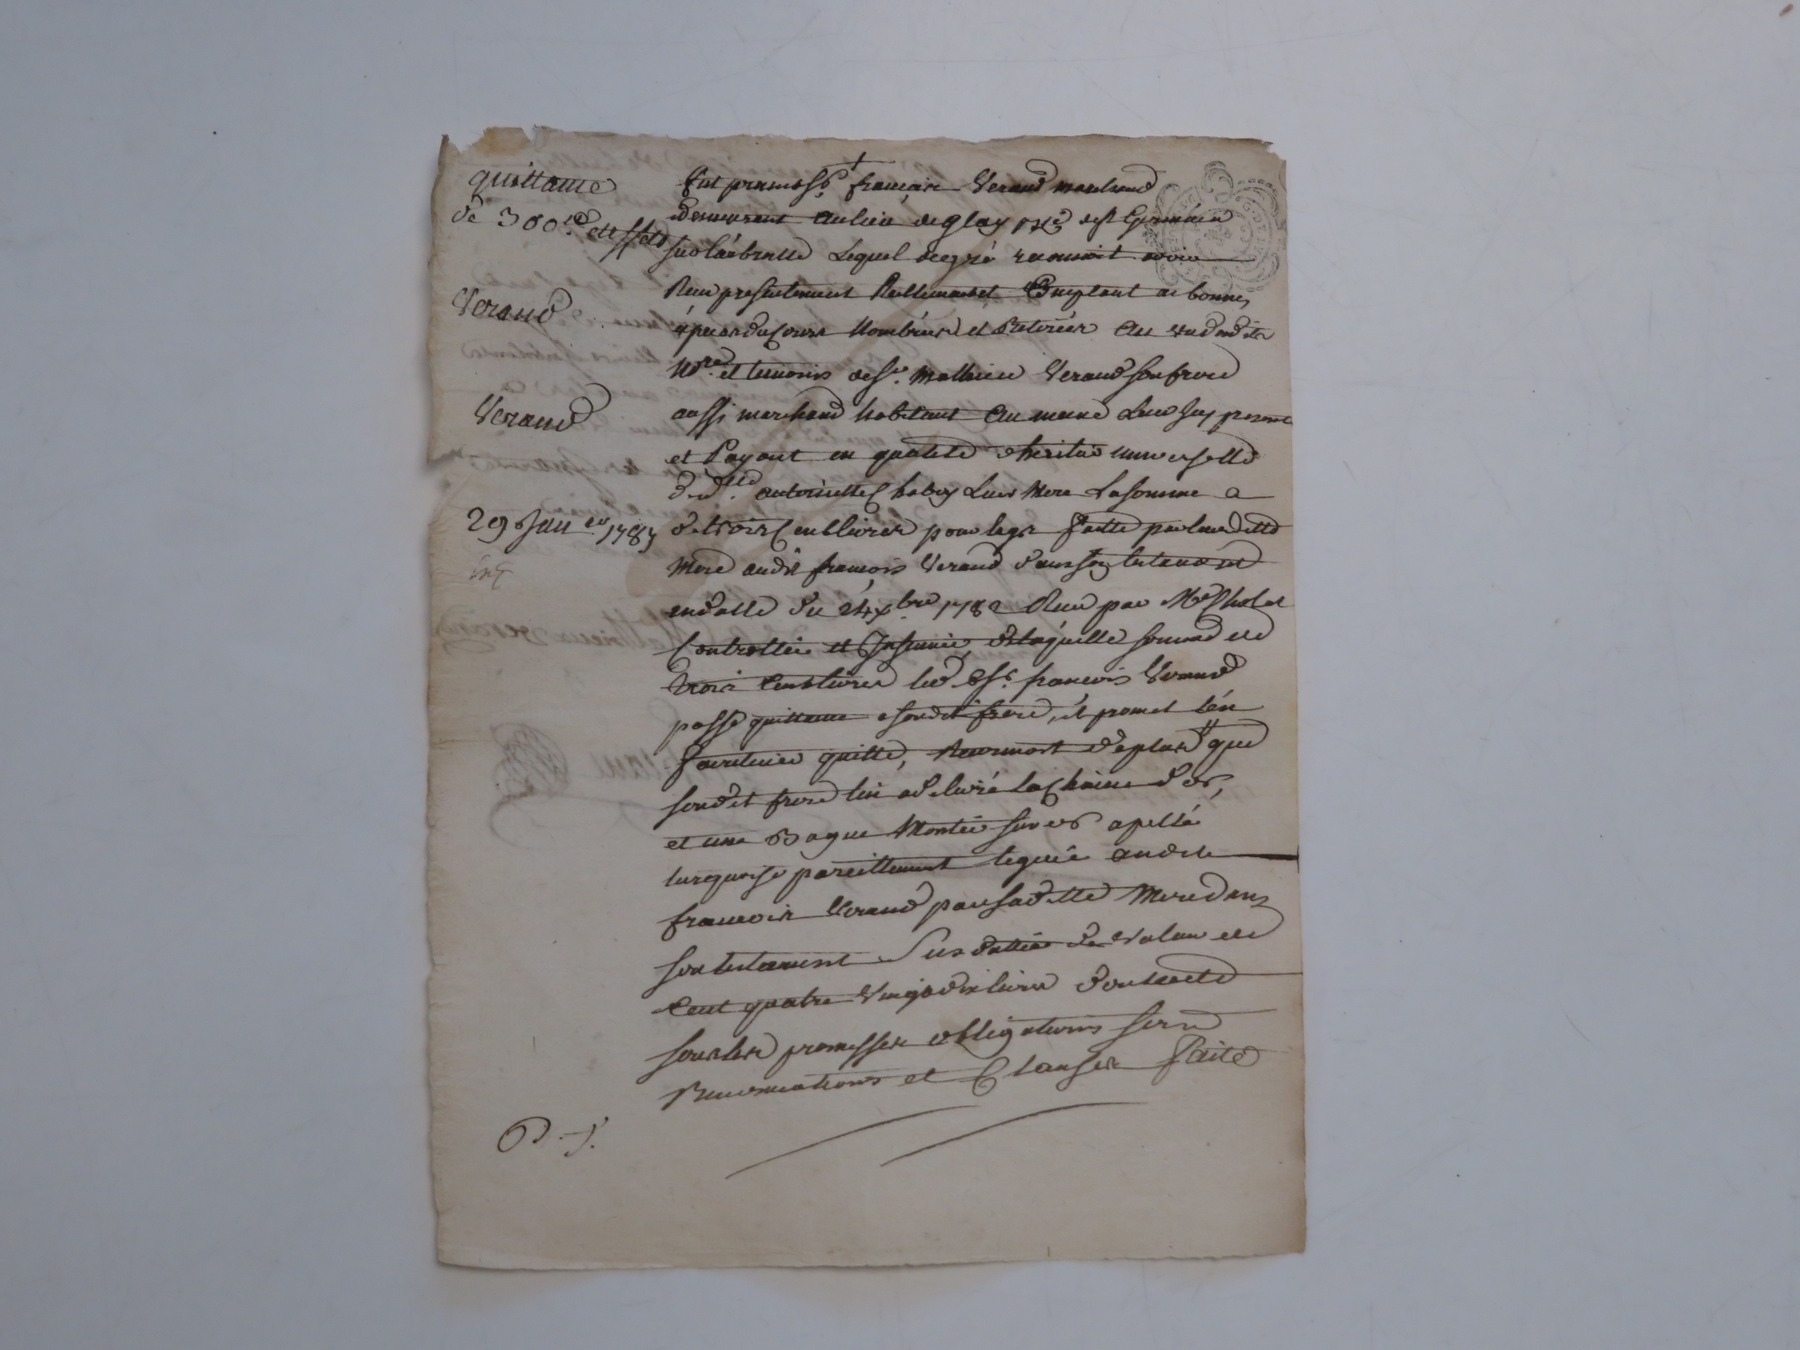 quittance
de 300 ld et effets
Verand
Verand
29 Janer 1783
fut present Sr françois Verand marchand
demeurant au lieu de glay psse de st Germain
sur l'arbresle Lequel de gré reconnoit avoir
Reçu presentement Reellement et Comptant en bonnes
espeses du Cours Nombrées et Retirées au vu dud
Nre et temoins de Sr Mathieu Verand son frere
aussi marchand habitant au meme Lieu Icy present
et Payant en qualité d'heritie universelle
de dlle antoinette Chaboy Leur Mere La somme
de trois Cent livres pour legs faitte par lad ditte
Mere audit françois Verand dans son testament
en datte du 24 xbre 1782 Reçu par Me
Controllée et Insinué, de laquelle somme de
trois Cent livres led Sr françois Verand
passe quittance a son dit frere, et promet l'en
faire tenir quitte, Reconnoit de plus que
son dit frere lui a delivré la Chaine d'or,
et une Bague Montée sur or apellé
turquoise pareillement leguée audit
françois Verand par sa ditte Mere dans
son testament Sus datté de valeur de
Cent quatre Vingt dix livres dont acte
sous les promesses obligations
Renonciations et Clauses faite